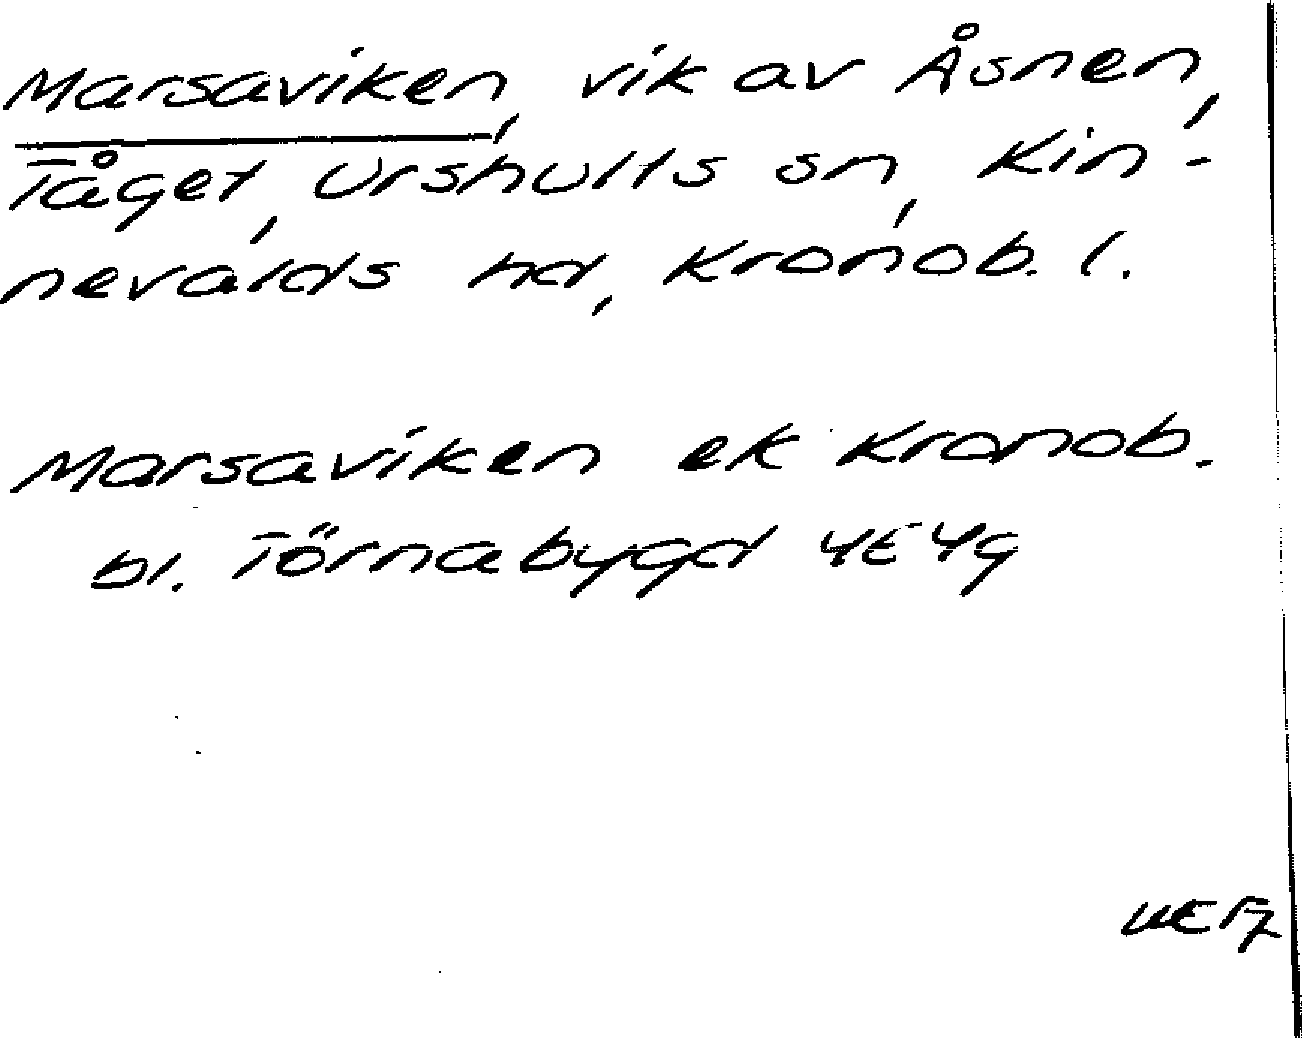 Marsaviken, vik av Åsnen,
Tåget, Urshults sn, Kin-
nevalds hd, Kronob. l.
Marsaviken ek Kronob.
bl. Törnabygd 4E4g